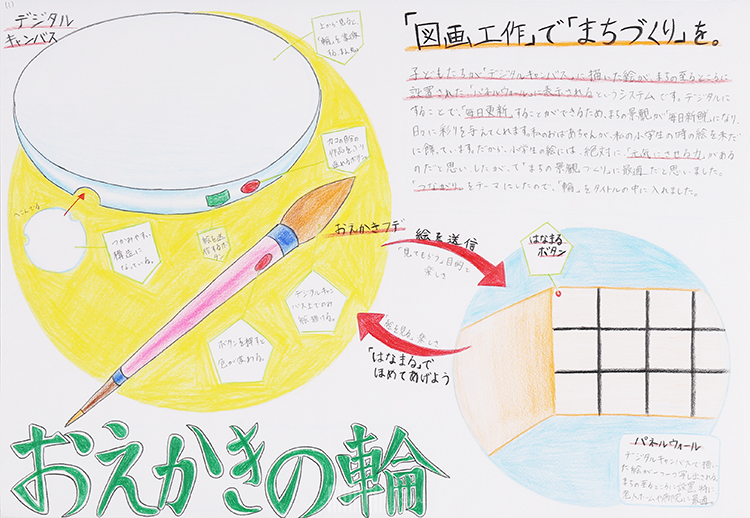 デジタル
キャンバス
上から見ると、
「輪」を意味
「図画工作」で「まちづくり」を。
子どもたちが「デジタルキャンバス」に描いた絵が、まちの至るところに
設置された「パネルウォール」に表示されるというシステムです。デジタルに
することで、「毎日更新」することができるため、まちの景観が「毎日新鮮」になり、
日々に彩りを与えてくれます。私のおばあちゃんが、私の小学生の時の絵を未だ
に飾っています。だから、小学生の絵には、絶対に、「元気にさせる力」がある
のだと思いました。したがって「まちの景観づくり」に最適だと思いました。
「つながり」をテーマにしたので、「輪」をタイトルの中に入れました。
へこんでる
つかみやすい
構造に
なっている。
絵を送
信するボ
タン
おえかきフデ
絵を送信
「見てもらう」目的と
楽しさ
はなまる
ボタン
デジタルキャン
バス上でのみ
絵描ける。
ボタンを押すと
色が変わる。
絵を見る、楽しさ
「はなまる」で
ほめてあげよう
パネルウォール
デジタルキャンバスで描い
た絵が一つ一つ写し出される。
まちの至るところに設置。特に
老人ホームや病院に最適。
おえかきの輪